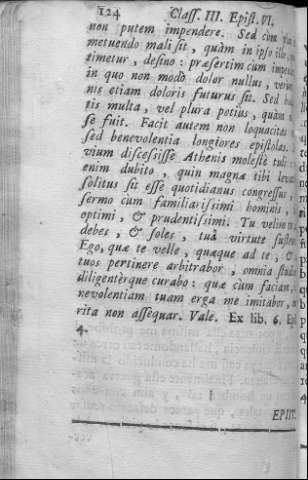 124 Class. III. Epist. VI.
non putem impendere. Sed cùm
metuendo mali sit, quàm in ipso illo
timetur, desino: præsertim cum impen
in quo non modò dolor nullus, verùm
nis etiam doloris futurus sit. Sed
tis multa, vel plura potius, quàm
se fuit. Facit autem non loquacitas
sed benevolentia longiores epistolas.
vium discessisse Athenis molestè tuli
enim dubito, quin magnæ tibi leva
solitus sit esse quotidianus congressus,
sermo cum familiarissimi hominis,
optimi, & prudentissimi. Tu velim
debes, & soles, tuâ virtute susten
Ego, quæ te velle, quæque ad te,
tuos pertinere arbitrabor, omnia studiosè
diligentèrque curabo: quæ cum faciam,
nevolentiam tuam erga me imitabor,
rita non assequar. Vale. Ex lib. 6. Epi
4.
EPIST.